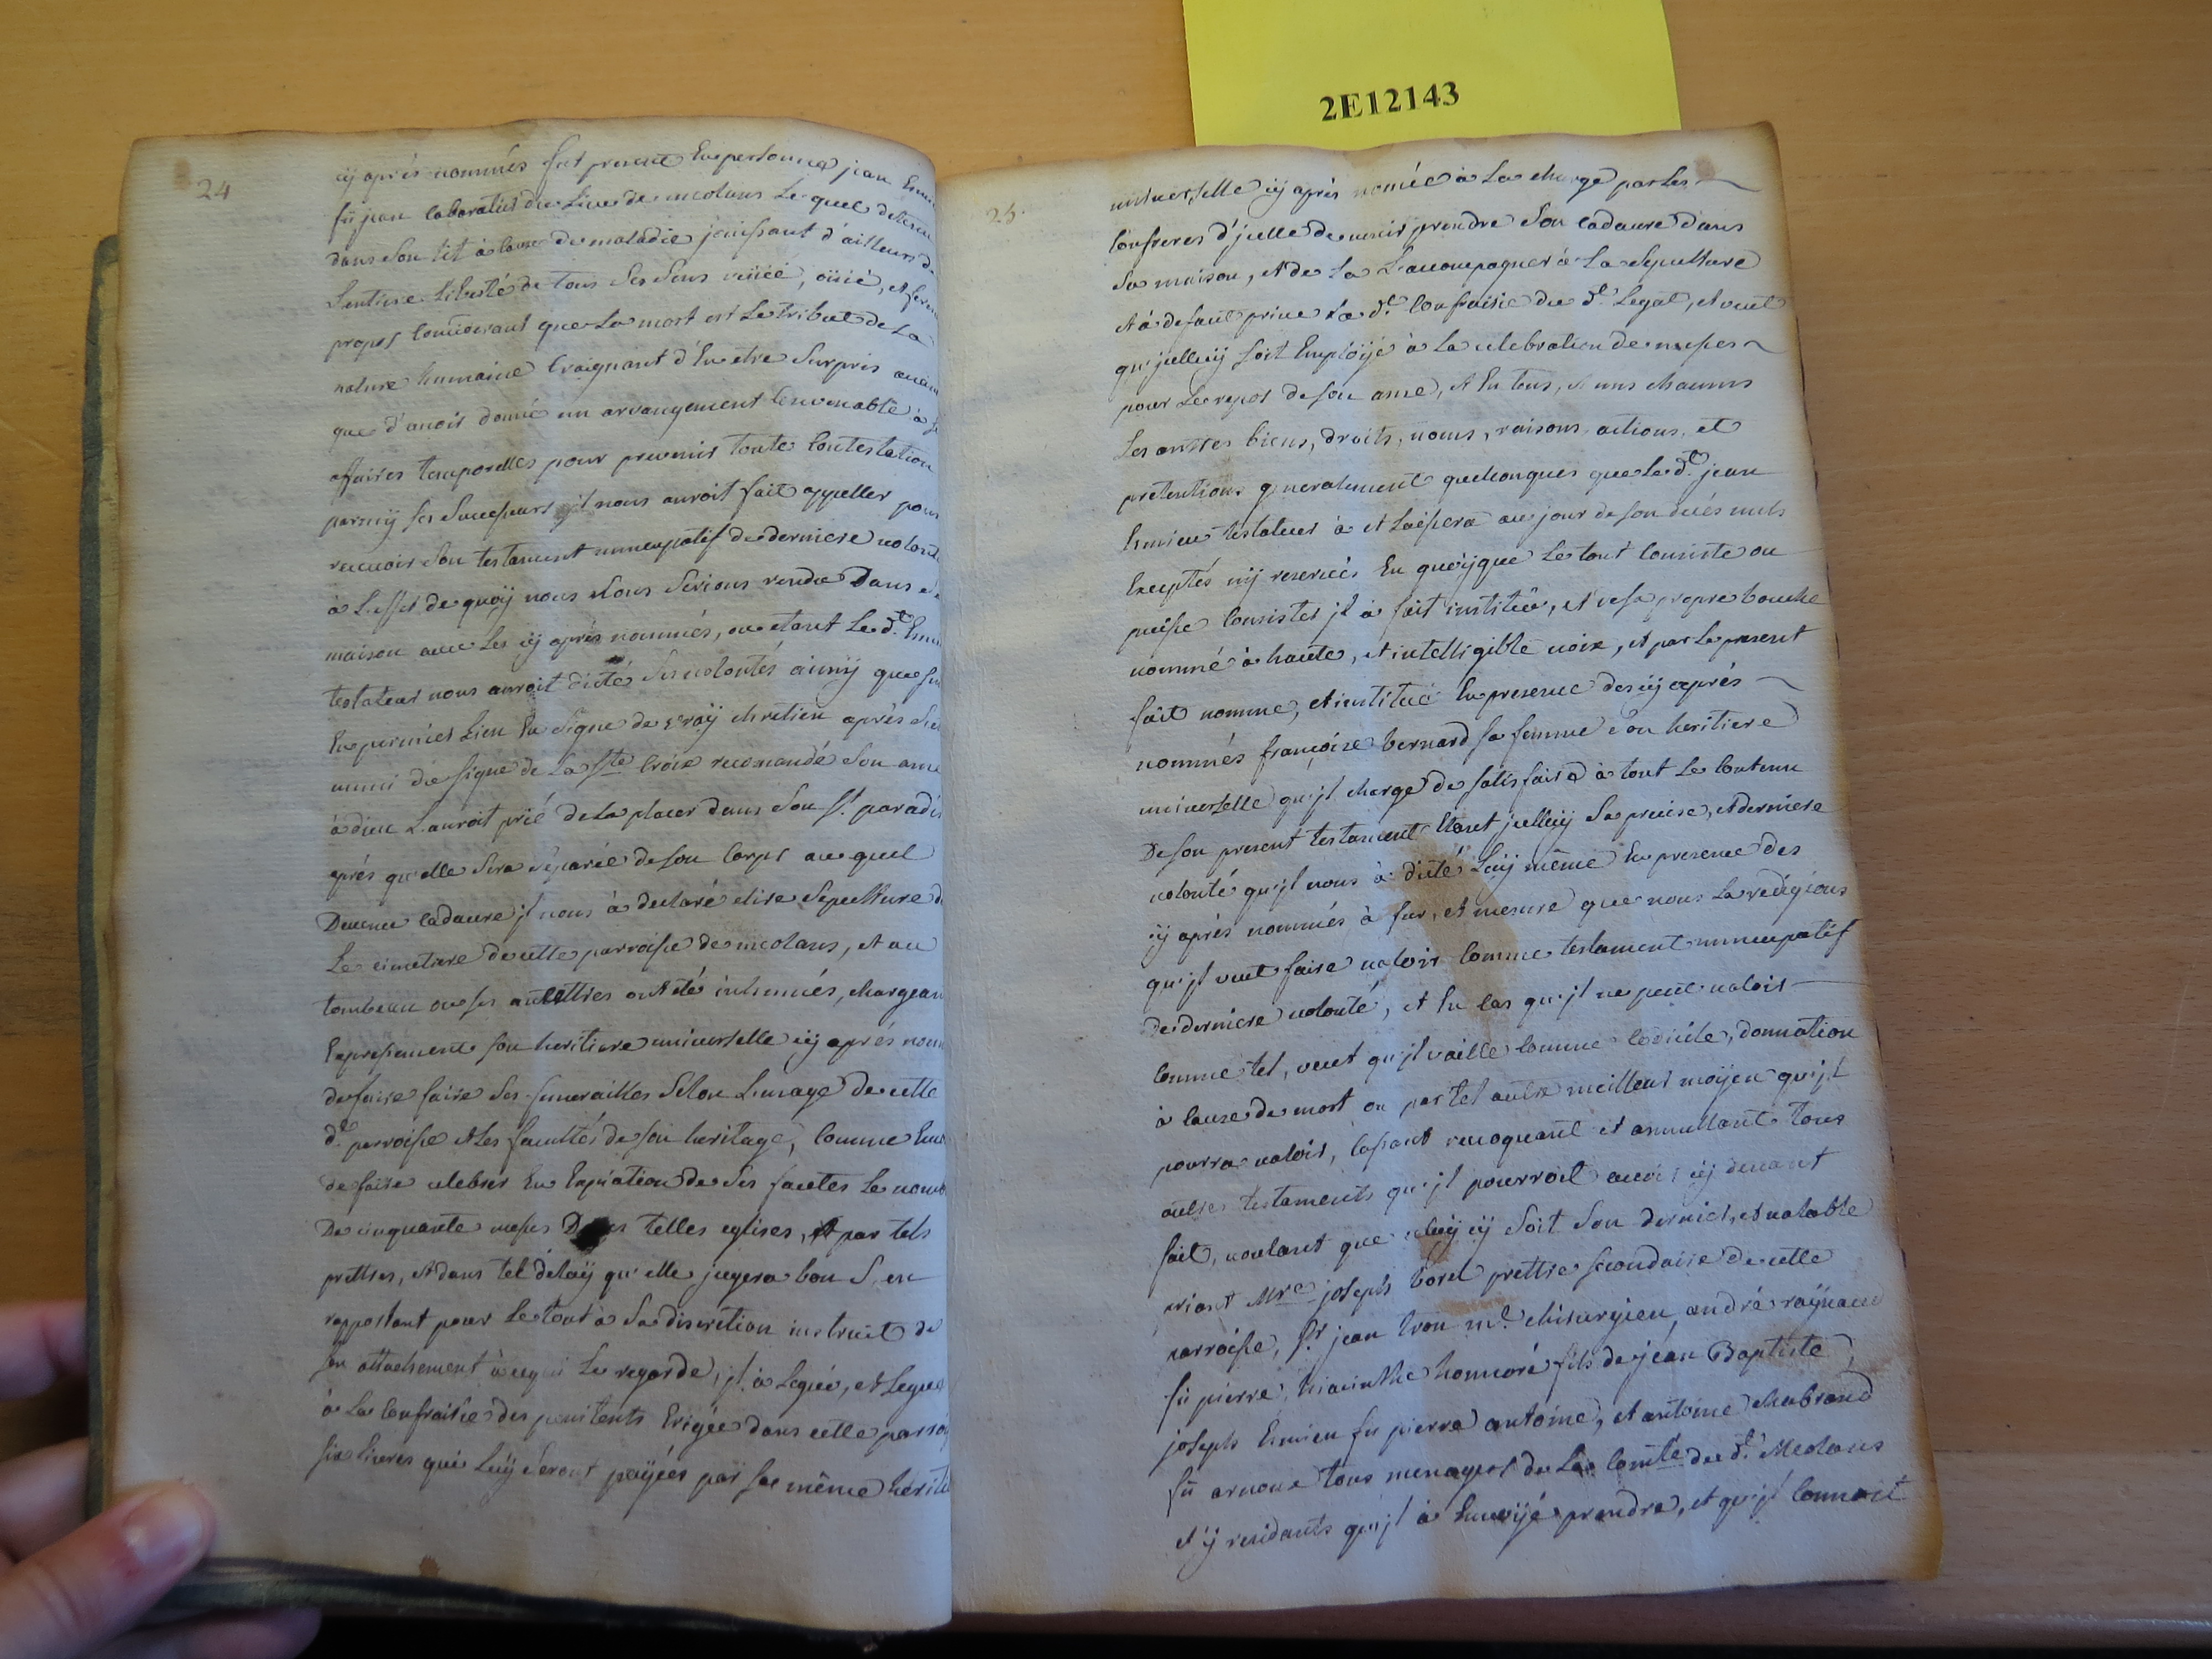 2E12143
24
cÿ aprés nommés fut present En personne jean Emi
fû jean laboratiet du Lieu de meolans Le quel detenu
dans son lit à cause de maladie jouissant d'ailleurs d
L'entiere Liberté de tous Ses Sens veüëe, oüie, et ferm
propos Considerant que La mort est Le tribut de La
nature humaine Craignant d'En etre Surpris avan
que d'avoir donné un arrangement Convenable à Se
affaires temporelles pour prevenir toute Contestation
parmÿ Ses Successeurs jl nous auroit fait appeller pour
recevoir Son testament nuncupatif de derniere volont
à L'effet de quoÿ nous nous Serions rendu Dans
maison avec Les cÿ aprés nommés, ou etant Le d.t Emi
testateur nous auroit dicté Ses volontés ainsÿ que s
En premier Lieu En Signe de vraÿ chretien aprés S'e
muni du signe de La Ste Croix recomandé Son ame
à dieu L'auroit prié de La placer dans Son St. paradis
aprés qu'elle Sera séparée de son Corps au quel
Devenu Cadavre jl nous à declaré elire Sepulture d
Le cimetiere de cette parroisse de meolans, et au
tombeau ou ses ancettres ont été inhumés, chargean
Expressement son heritiere universelle cÿ aprés nom
de faire faire Ses funerailles Selon L'usage de cette
d.te parroisse et Les facultés de son heritage, Comme Enc
de faire celebrer En Expiation de Ses fautes Le nomb
De cinquante messes Dans telles eglises, et par tels
prettres, et dans tel delaÿ qu'elle jugera bon S'en
rapportant pour Le tout à Sa discretion instruit de
son attachement à ce qui Le regarde, jl à Legué, et Legue
à La Confrairie des penitents Erigée dans cette parroi
six Livres qui Luÿ Seront paÿées par sa même herit
25.
universelle cÿ aprés nomée à La charge par Les
Confreres d'jcelle de venir prendre Son Cadavre dans
Sa maison, et de La L'accompagner à La Sepulture
et à defaut prive La d.te Confrairie du d.t Legat, et veut
qu'jcelluÿ soit Emploÿé à La celebration de messes
pour Le repos de son ame, et En tous, et uns chacuns
Ses autres biens, droits, noms, raisons, actions, et
pretentions generalement quelconques que Le d.t jean
Emieu testateur à et Laissera au jour de son decés nuls
Exceptés nÿ reservés En quoÿ que Le tout Consiste ou
puisse Consister jl à fait institué, et de sa propre bouche
nommé à haute, et intelligible voix, et par Le present
fait nomme, et institue En presence des cÿ aprés
nommés françoise bernard sa femme Son heritiere
universelle qu'jl charge de satisfaire à tout Le Contenu
De son present testament Etant jcelluÿ Sa precise, et derniere
volonté qu'jl nous à dicté Luÿ même En presence des
cÿ aprés nommés à fur, et mesure que nous La redigions
qu'jl veut faire valoir Comme testament nuncupatif
de derniere volonté, et En Cas qu'jl ne peut valoir
Comme tel, veut qu'jl vaille Comme Codicile, donnation
à Cause de mort ou par tel autre meilleur moÿen qu'jl
pourra valoir, Cassant revoquant et annullant tous
autres testaments qu'jl pourroit avoir cÿ devant
fait, voulant que celuÿ cÿ Soit Son dernier, et valable
priant Mre joseph borel prettre secondaire de cette
parroisse, Sr. jean tron m.e chirurgien, andré raÿnaud
fû pierre, hiacinthe honnoré fils de jean Baptiste,
joseph Emieu fû pierre antoine, et antoine chabrand
fû arnoux tous menagers du La Comté du d.t Meolans
et ÿ residants qu'jl à Envoÿé prendre, et qu'jl Connoit